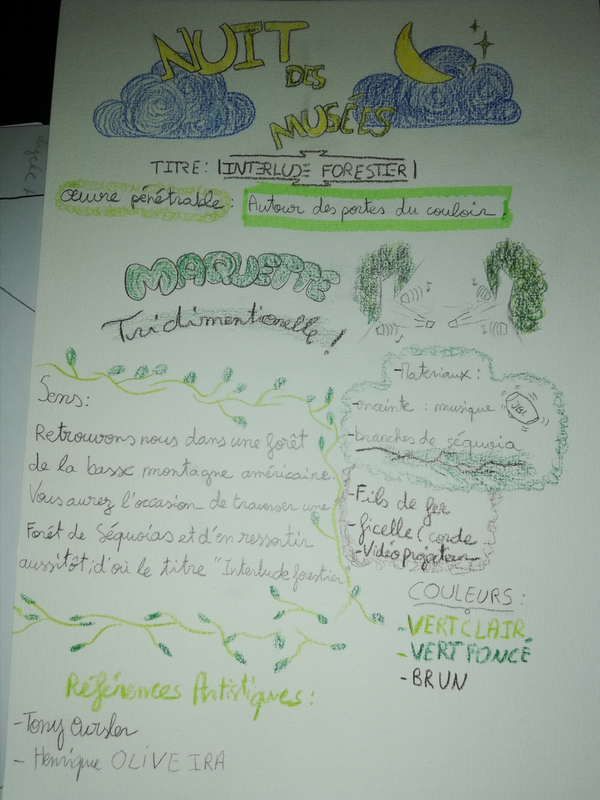 NUIT
DES
MUSÉES
TITRE: INTERLUDE FORESTIER
Œuvre pénétrable : Autour des portes du couloir
MAQUETTE
Tridimentionelle !
Sens:
Retrouvons nous dans une forêt
de la basse montagne américaine.
Vous aurez l'occasion de traverser une
Forêt de Séquoias et d'en ressortir
aussitôt, d'où le titre "Interlude forestier
-Materiaux :
-enceinte : musique
JBL
-branches de séquoia
-Fils de fer
-ficelle (corde
-Vidéoprojecteur
COULEURS :
-VERT CLAIR
-VERT FONCÉ
-BRUN
Références Artistiques :
-Tony Oursler
- Henrique OLIVEIRA